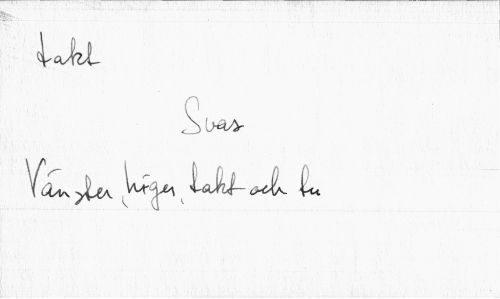 takt
Svas
Vänster, höger, takt och tu